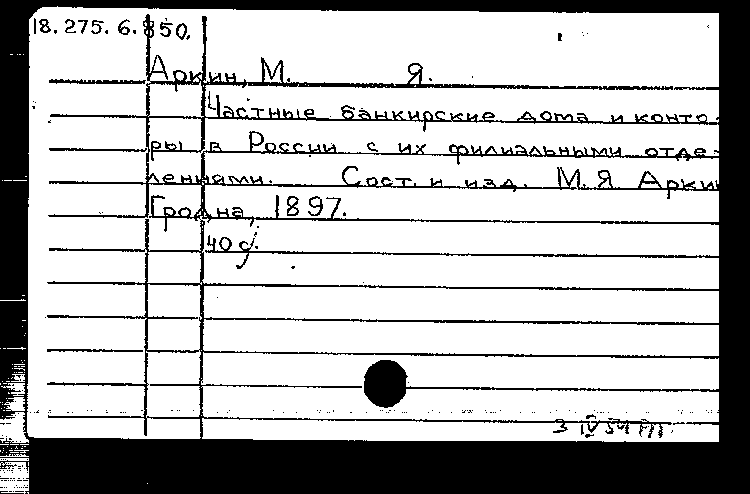 18.275.6.850.
Аркин, М. Я.
Частные банкирские дома и конто-
ры в России с их филиальными отде-
лениями. Сост. и изд. М.Я Аркин
Гродна, 1897.
40 с.
3 IV 54